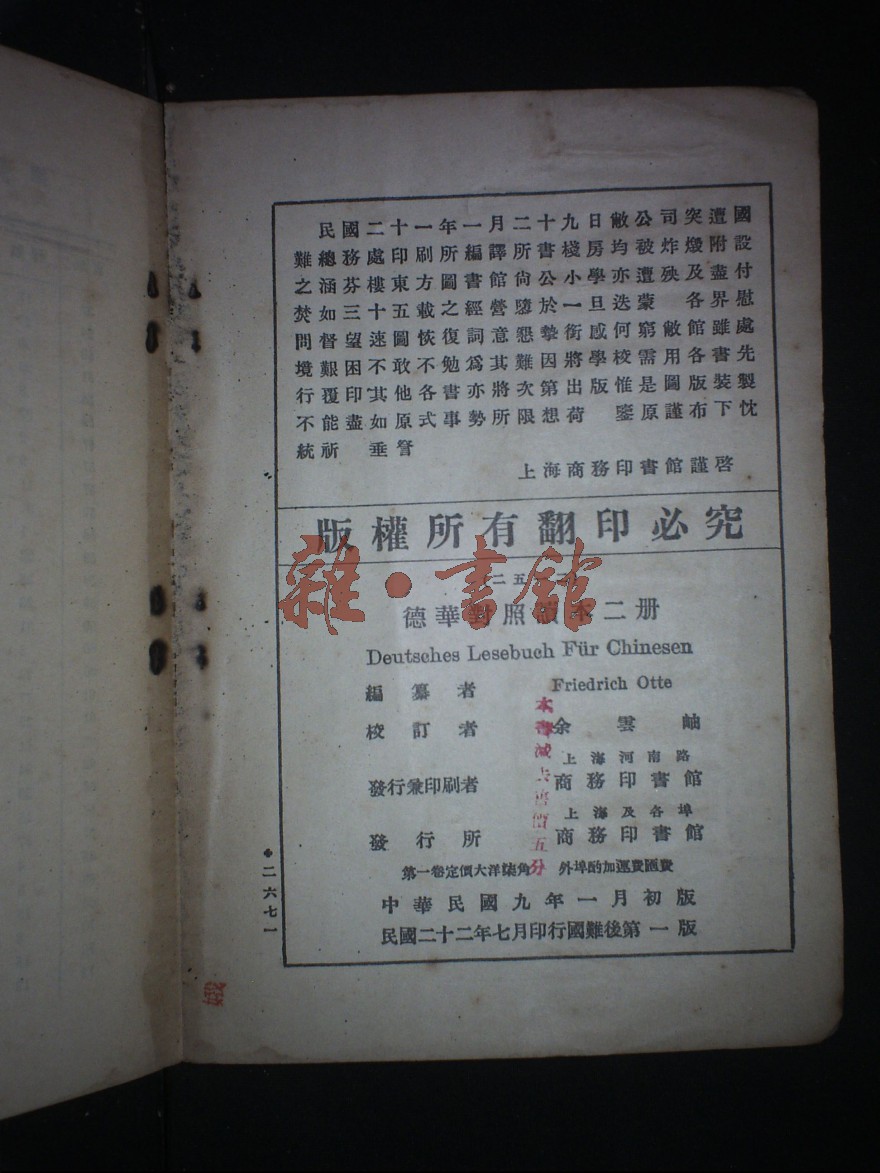 民國二十一年一月二十九日敝公司突遭國
難總務處印刷所編譯所書棧房均被炸燬附設
之涵芬樓東方圖書館尚公小學亦遭殃及盡付
焚如三十五載之經營隳於一旦迭蒙各界慰
問督望速圖恢復詞意懇摯銜感何窮敝館雖處
境艱困不敢不勉爲其難因將學校需用各書先
行覆印其他各書亦將次第出版惟是圖版裝製
不能盡如原式事勢所限想荷鑒原謹布下忱
統祈垂詧
上海商務印書館謹啓
版權所有翻印必究
雜·書館
二五
德華對照讀本二册
Deutsches Lesebuch Für Chinesen
編纂者 Friedrich Otte
校訂者 余雲岫
上海河南路
發行兼印刷者 商務印書館
上海及各埠
發行所 商務印書館
第一卷定價大洋柒角 外埠酌加運費匯費
中華民國九年一月初版
民國二十二年七月印行國難後第一版
本書減價五分
二六七一